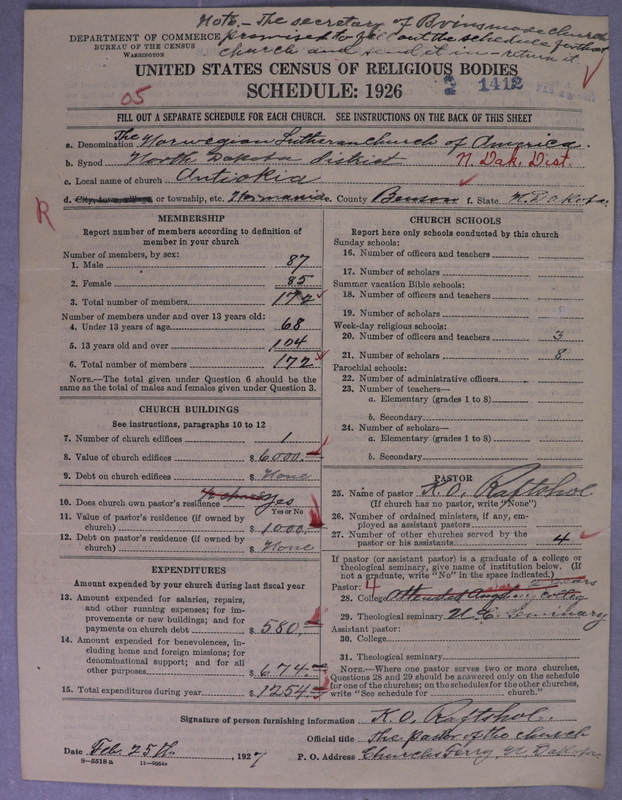 Note,- The secretary of Brinsmade church
promised to fill out the schedule for that
church and send it in - return it
DEPARTMENT OF COMMERCE
BUREAU OF THE CENSUS
WASHINGTON
UNITED STATES CENSUS OF RELIGIOUS BODIES
SCHEDULE: 1926
05
1412
FILL OUT A SEPARATE SCHEDULE FOR EACH CHURCH. SEE INSTRUCTIONS ON THE BACK OF THIS SHEET
a. Denomination The Norwegian Lutheran Church of America.
b. Synod North Dakota district N. Dak. Dist.
c. Local name of church Antiokia
d. City, town, village, or township, etc. Normania e. County Benson f. State N. Dakota.
R
MEMBERSHIP
Report number of members according to definition of
member in your church
Number of members, by sex:
1. Male 87
2. Female 85
3. Total number of members 172
Number of members under and over 13 years old:
4. Under 13 years of age 68
5. 13 years old and over 104
6. Total number of members 172
NOTE.—The total given under Question 6 should be the
same as the total of males and females given under Question 3.
CHURCH BUILDINGS
See instructions, paragraphs 10 to 12
7. Number of church edifices 1
8. Value of church edifices $ 6000.
9. Debt on church edifices $ None
10. Does church own pastor's residence yes
Yes or No
11. Value of pastor's residence (if owned by
church) $ 1000.
12. Debt on pastor's residence (if owned by
church) $ None
EXPENDITURES
Amount expended by your church during last fiscal year
13. Amount expended for salaries, repairs,
and other running expenses; for im-
provements or new buildings; and for
payments on church debt $ 580.
14. Amount expended for benevolences, in-
cluding home and foreign missions; for
denominational support; and for all
other purposes $ 674.
15. Total expenditures during year $ 1254.
CHURCH SCHOOLS
Report here only schools conducted by this church
Sunday schools:
16. Number of officers and teachers
17. Number of scholars
Summer vacation Bible schools:
18. Number of officers and teachers
19. Number of scholars
Week-day religious schools:
20. Number of officers and teachers 3
21. Number of scholars 8
Parochial schools:
22. Number of administrative officers
23. Number of teachers—
a. Elementary (grades 1 to 8)
b. Secondary
24. Number of scholars—
a. Elementary (grades 1 to 8)
b. Secondary
PASTOR
25. Name of pastor K. O. Raftshol
(If church has no pastor, write "None")
26. Number of ordained ministers, if any, em-
ployed as assistant pastors
27. Number of other churches served by the
pastor or his assistants 4
If pastor (or assistant pastor) is a graduate of a college or
theological seminary, give name of institution below. (If
not a graduate, write "No" in the space indicated.)
Pastor: 4
28. College Attended College
29. Theological seminary U. C. Seminary
Assistant pastor:
30. College
31. Theological seminary
NOTE.—Where one pastor serves two or more churches,
Questions 28 and 29 should be answered only on the schedule
for one of the churches; on the schedules for the other churches,
write "See schedule for church."
Signature of person furnishing information K. O. Raftshol.
Official title The pastor of the church
Date Feb. 25th, 1927 P. O. Address Churchs Ferry, N. Dakota
8—5518 a 11—9054